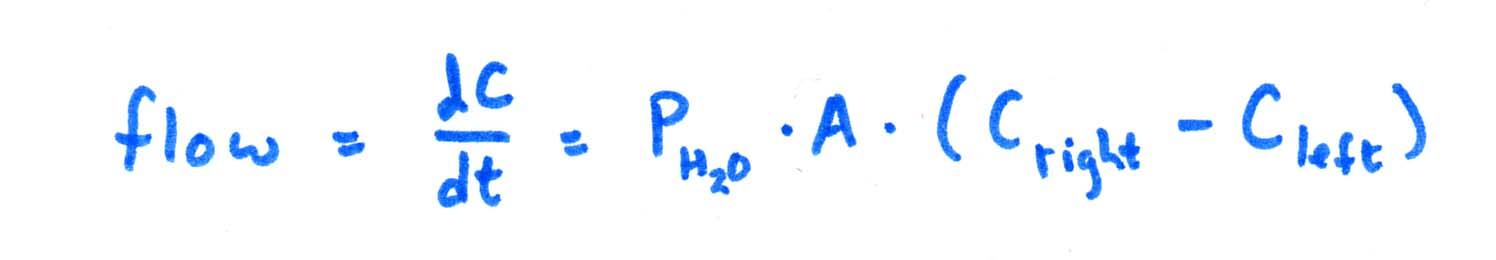 flow = dC/dt = P_H₂O · A · (C_right - C_left)